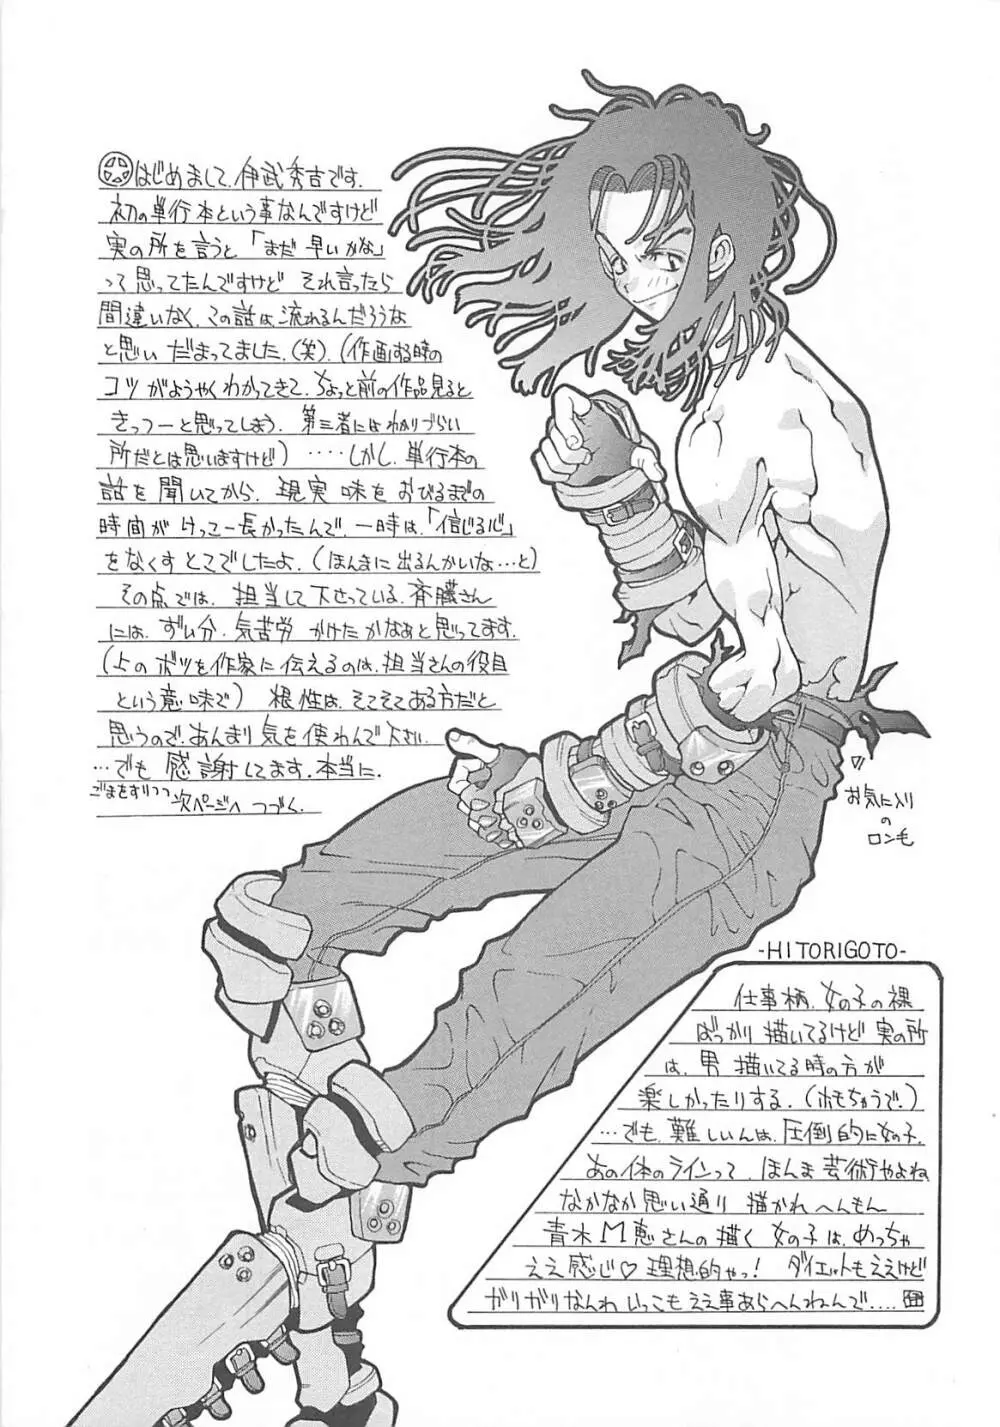 はじめまして、伊武秀吉です。
初の単行本という事なんですけど
実の所を言うと「まだ早いかな」
って思ってたんですけど それ言ったら
間違いなく、この話は、流れるんだろうな
と思い だまってました、(笑)、(作画する時の
コツがようやくわかってきて、ちょっと前の作品見ると
きっつーと思ってしまう、第三者にはわかりづらい
所だとは思いますけど)‥‥しかし、単行本の
話を聞いてから、現実味をおびるまでの
時間が けっこー長かったんで、一時は、「信じる心」
をなくすとこでしたよ、(ほんまに出るんかいな…と)
その点では、担当して下さっている、斉藤さん
には、ずい分、気苦労 かけたかなぁと思ってます、
(上のボツを作家に伝えるのは、担当さんの役目
という意味で) 根性は、そこそこある方だと
思うので、あんまり気を使わんで下さい
…でも 感謝してます、本当に、
ごまをすりつつ 次ページへ つづく、
お気に入り
の
ロン毛
-HITORIGOTO-
仕事柄、女の子の裸
ばっかり描いてるけど 実の所
は、男 描いてる時の方が
楽しかったりする、(ホモちゃうで、)
…でも、難しいんは、圧倒的に女の子、
あの体のラインって、ほんま芸術やよね
なかなか思い通り 描かれへんもん
青木M恵さんの描く女の子は、めっちゃ
ええ感じ♡理想的やっ! ダイエットもええけど
ガリガリなんわ いっこもええ事あらへんねんで‥‥